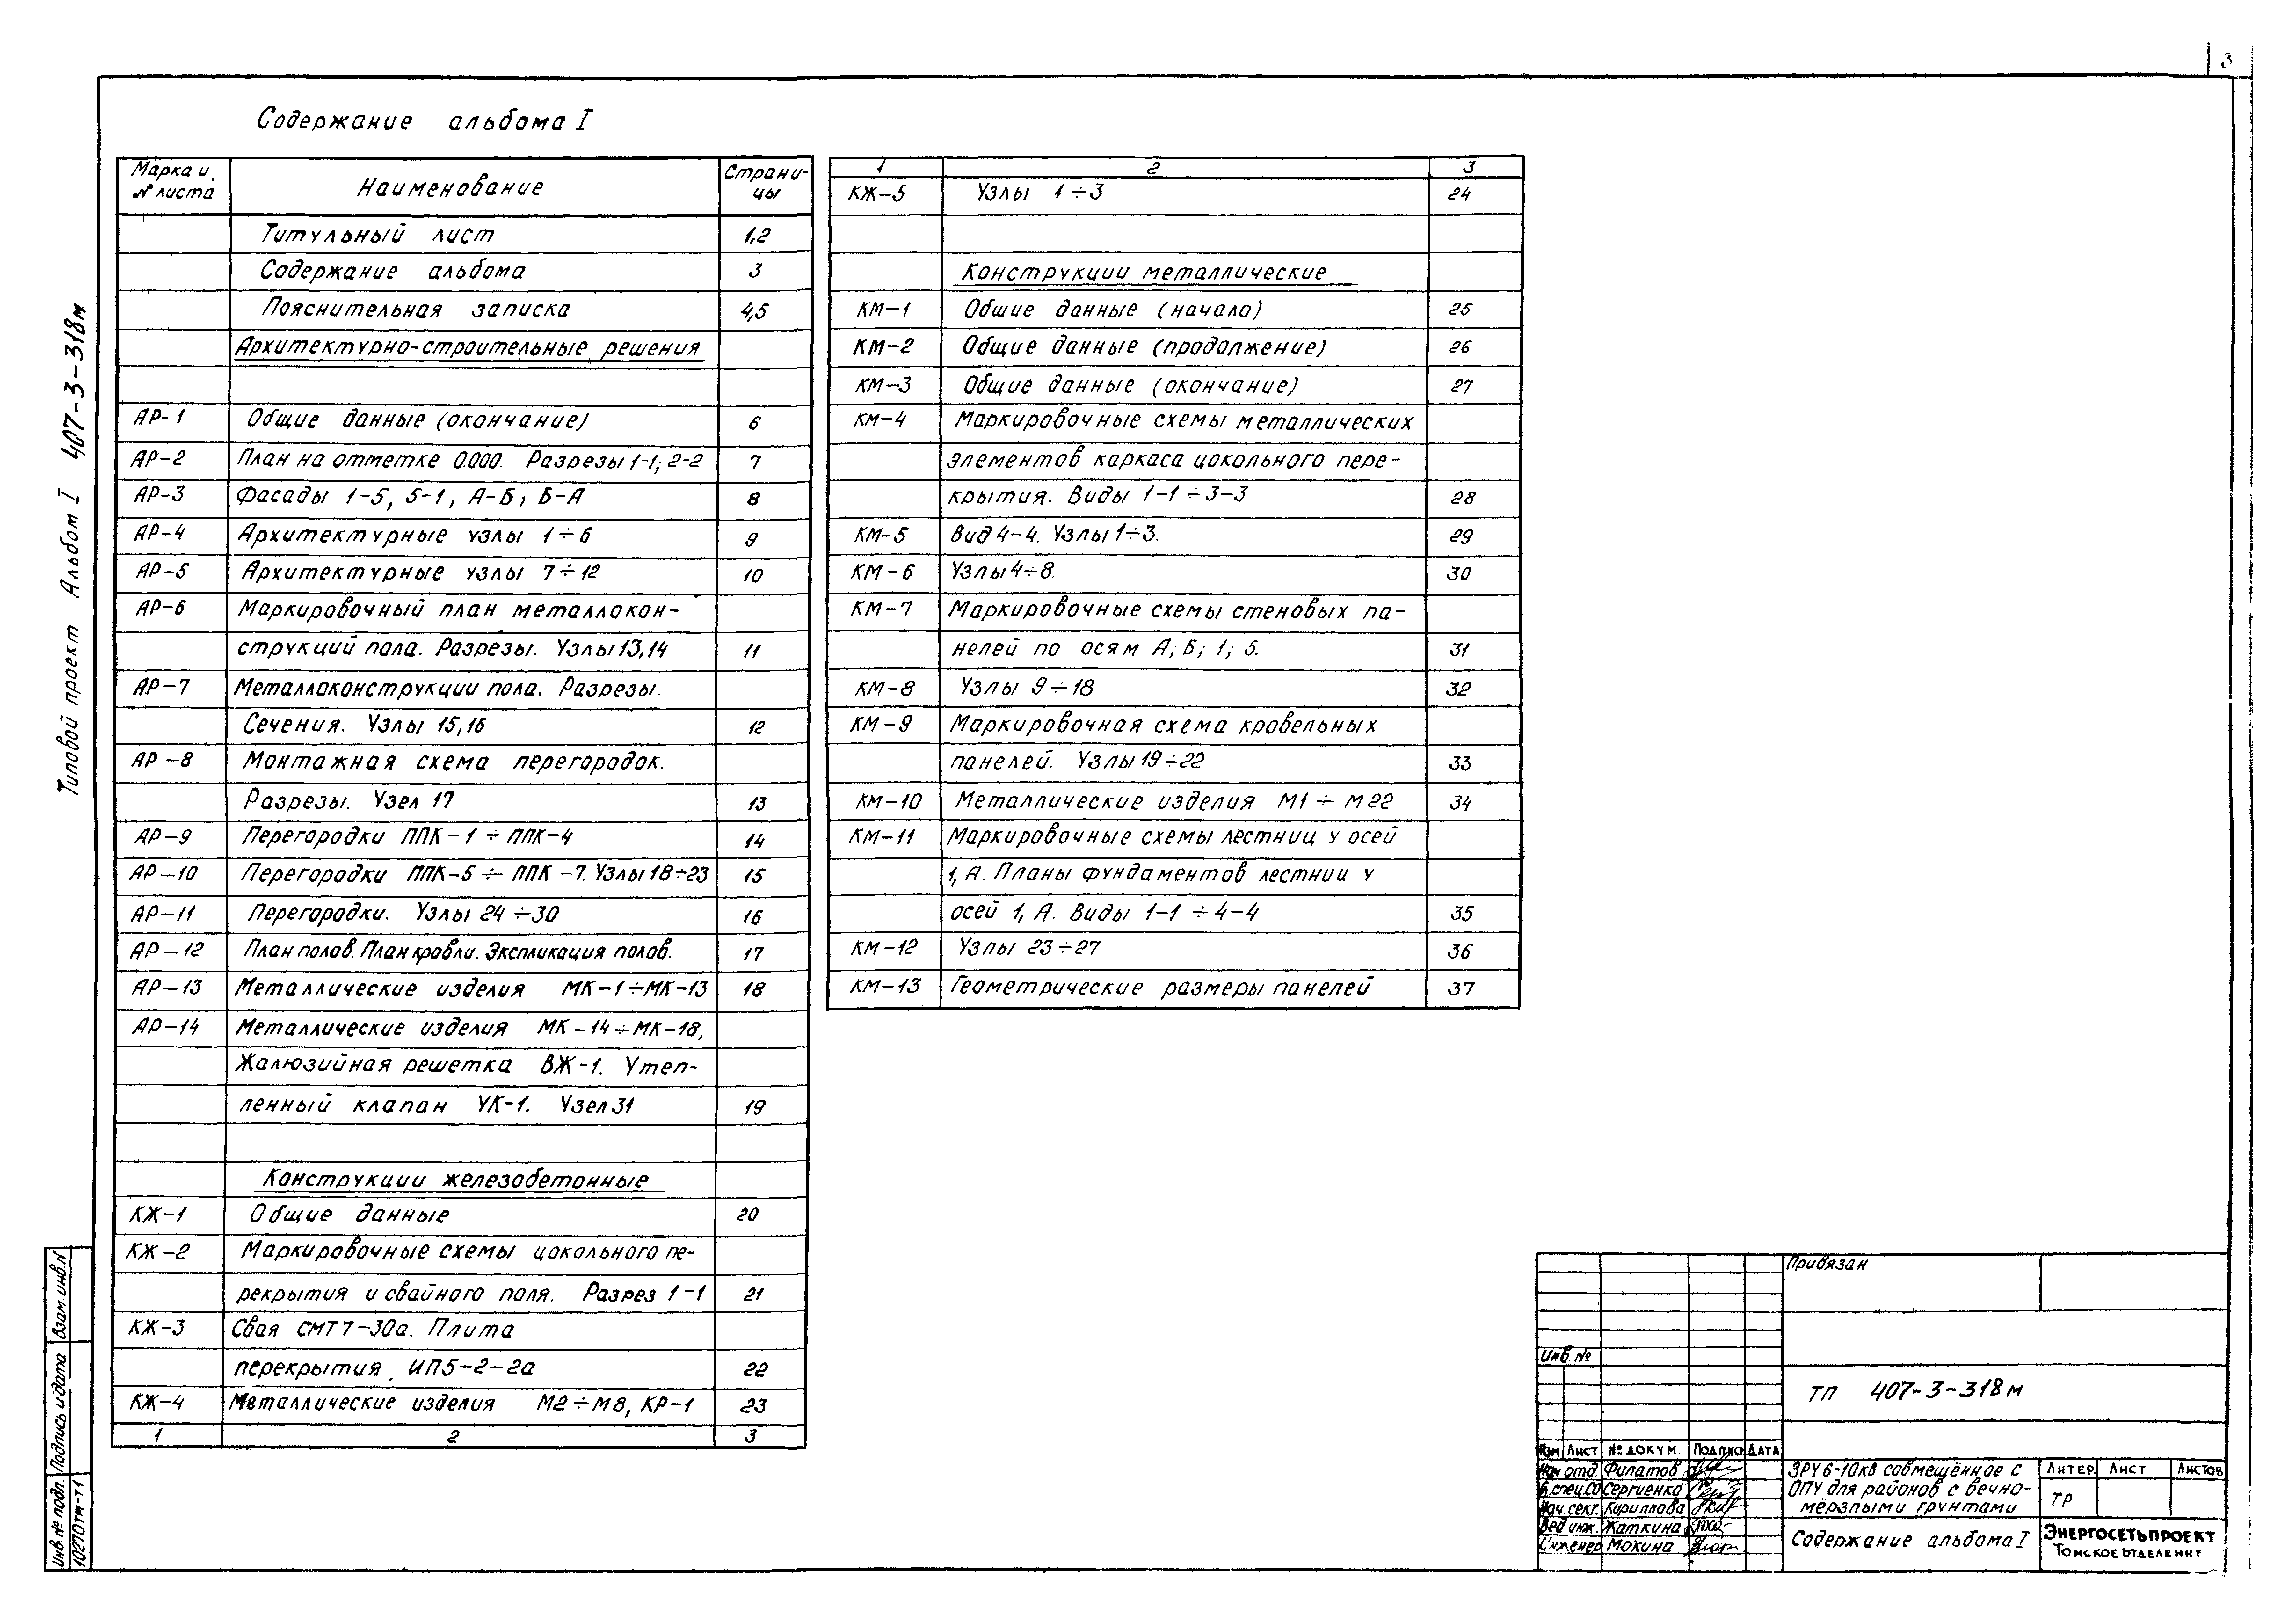 3
Содержание альбома I
Марка и № листа Наименование Страницы
Титульный лист 1,2
Содержание альбома 3
Пояснительная записка 4,5
Архитектурно-строительные решения
АР-1 Общие данные (окончание) 6
АР-2 План на отметке 0.000. Разрезы 1-1; 2-2 7
АР-3 Фасады 1-5, 5-1, А-Б, Б-А 8
АР-4 Архитектурные узлы 1÷6 9
АР-5 Архитектурные узлы 7÷12 10
АР-6 Маркировочный план металлокон-
струкций пола. Разрезы. Узлы 13,14 11
АР-7 Металлоконструкции пола. Разрезы.
Сечения. Узлы 15,16 12
АР-8 Монтажная схема перегородок.
Разрезы. Узел 17 13
АР-9 Перегородки ППК-1 ÷ ППК-4 14
АР-10 Перегородки ППК-5 ÷ ППК-7. Узлы 18÷23 15
АР-11 Перегородки. Узлы 24÷30 16
АР-12 План полов. План кровли. Экспликация полов. 17
АР-13 Металлические изделия МК-1÷МК-13 18
АР-14 Металлические изделия МК-14÷МК-18,
Жалюзийная решетка ВЖ-1. Утеп-
ленный клапан УК-1. Узел 31 19
Конструкции железобетонные
КЖ-1 Общие данные 20
КЖ-2 Маркировочные схемы цокольного пе-
рекрытия и свайного поля. Разрез 1-1 21
КЖ-3 Свая СМТ7-30а. Плита
перекрытия ИП5-2-2а 22
КЖ-4 Металлические изделия М2÷М8, КР-1 23
1 2 3
1 2 3
КЖ-5 Узлы 1÷3 24
Конструкции металлические
КМ-1 Общие данные (начало) 25
КМ-2 Общие данные (продолжение) 26
КМ-3 Общие данные (окончание) 27
КМ-4 Маркировочные схемы металлических
элементов каркаса цокольного пере-
крытия. Виды 1-1 ÷ 3-3 28
КМ-5 Вид 4-4. Узлы 1÷3. 29
КМ-6 Узлы 4÷8. 30
КМ-7 Маркировочные схемы стеновых па-
нелей по осям А; Б; 1; 5. 31
КМ-8 Узлы 9÷18 32
КМ-9 Маркировочная схема кровельных
панелей. Узлы 19÷22 33
КМ-10 Металлические изделия М1 ÷ М22 34
КМ-11 Маркировочные схемы лестниц у осей
1, А. Планы фундаментов лестниц у
осей 1, А. Виды 1-1 ÷ 4-4 35
КМ-12 Узлы 23÷27 36
КМ-13 Геометрические размеры панелей 37
Типовой проект Альбом I 407-3-318м
Взам. инв. №
Подпись и дата
Инв. № подл. 10270тм-т1
Привязан
Инв. №
ТП 407-3-318м
Изм Лист № докум. Подпись Дата
Нач. отд. Филатов
Гл. спец. СО Сергиенко
Нач. сект. Кириллова
Вед инж. Жаткина
Инженер Мокина
ЗРУ 6-10кв совмещённое с
ОПУ для районов с вечно-
мёрзлыми грунтами
Литер. Лист Листов
ТР
Содержание альбома I
Энергосетьпроект
Томское отделение